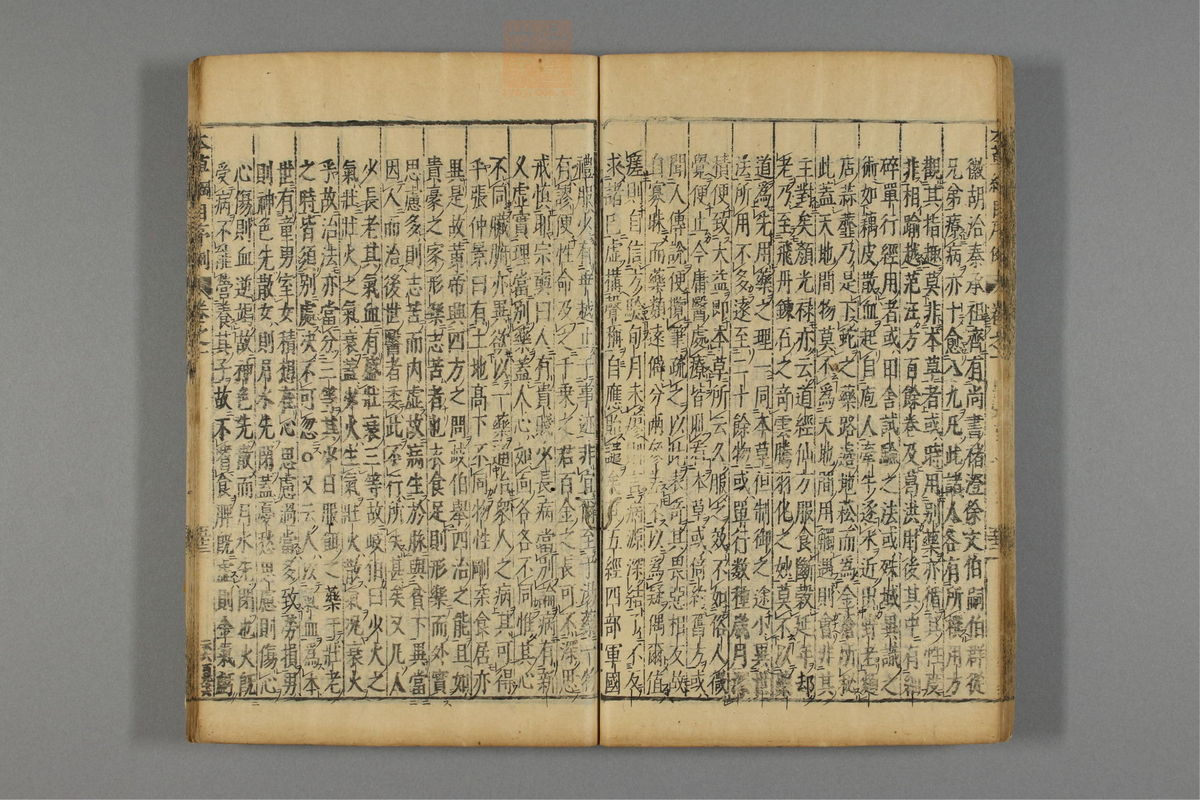 徽胡治秦承祖齊有尚書褚澄徐文伯嗣伯群從
兄弟療病亦十愈八九凡此諸人各有所撰用方
觀其指趣莫非本草者或時用別藥亦循其性度
非相踰越范汪方百餘卷及葛洪肘後其中有細
碎單行經用者或田舍試驗之法或殊域異識之
術如藕皮散血起自庖人牽牛逐水近出野老麪
店蒜虀乃是下蛇之藥路邊地菘而為金瘡所秘
此蓋天地間物莫不為天地間用觸遇則會非其
主對矣顏光祿亦云道經仙方服食斷穀延年却
老乃至飛丹鍊石之奇雲騰羽化之妙莫不以藥
道為先用藥之理一同本草但制御之途小異
法所用不多遠至二十餘物或單行數種歲月
積便致大益即本草所云久服之效不如俗人微
覺便止今庸醫處療皆
聞人傳說便攬筆疏之以此表奇其畏惡相反故
自寡昧而藥類違僻分兩不以為疑偶爾值
瘥則自信方驗旬月未病源深結了不反
求諸己虛構聲稱自應五經四部軍國
禮服正于事迹非宜
有謬便性命及之千乘之君百金之長可不深思
戒慎耶宗奭曰人有貴賤少長病當別論病有新
久虛實理當別藥蓋人心如面各各不同惟其心
不同臟腑亦異欲以一藥通治眾人之病其可得
乎張仲景曰有土地高下不同物性剛柔食居亦
異是故黃帝興四方之問歧伯舉四治之能且如
貴豪之家形樂志苦者也衣食足則形樂而外實
思慮多則志苦而內虛故病生於脉與貧下異當
因人而治後世醫者委此不行所失甚矣又凡人
少長老其氣血有盛壯衰三等故岐伯曰少火之
氣壯壯火之氣衰蓋少火生氣壯火散氣況衰火
乎故治法亦當分三等其少日服餌之藥于壯老
之時皆須別處決不可忽○又云人以氣血為本
世有童男室女積想在心思慮過當多致勞損男
則神色先散女則月水先閉蓋憂愁思慮則傷心
心傷則血逆竭故神色先散而月水先閉也火既
受病不能營養其子故不嗜食脾既虛則金氣虧
本草綱目序例
卷之一